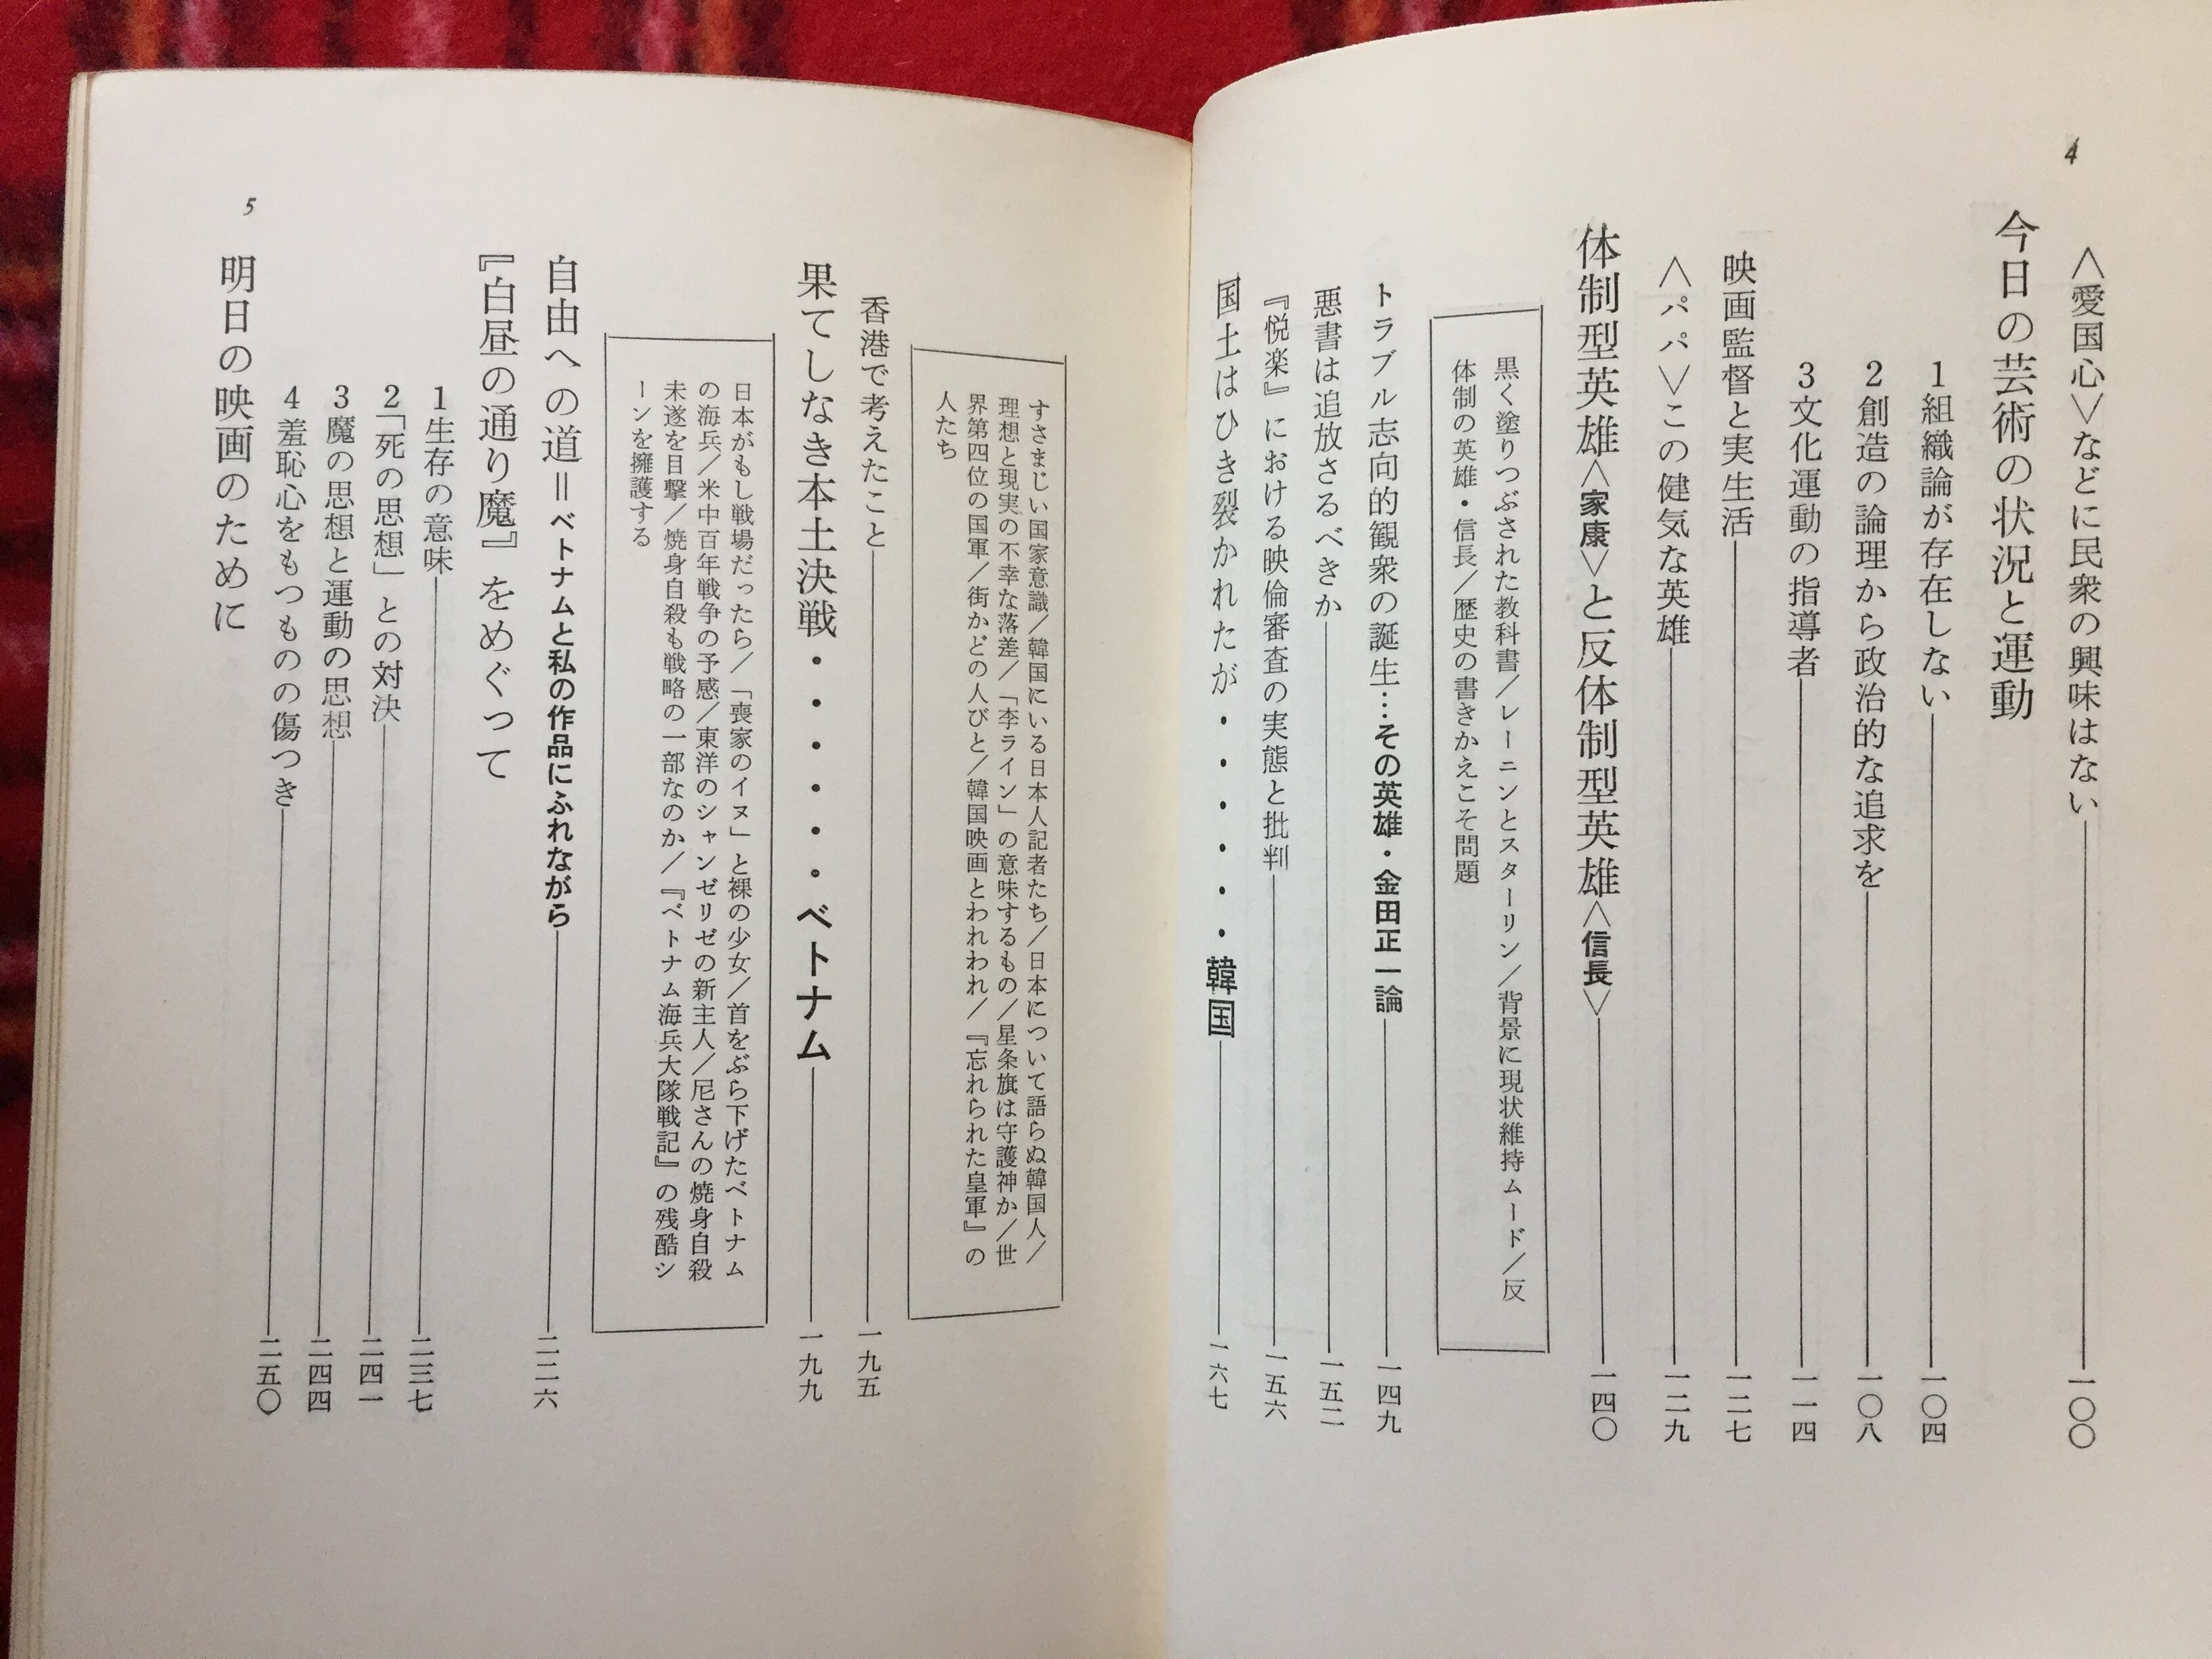 4
〈愛国心〉などに民衆の興味はない 一〇〇
今日の芸術の状況と運動
1 組織論が存在しない 一〇四
2 創造の論理から政治的な追求を 一〇八
3 文化運動の指導者 一一四
映画監督と実生活 一二七
〈パパ〉この健気な英雄 一二九
体制型英雄〈家康〉と反体制型英雄〈信長〉 一四〇
黒く塗りつぶされた教科書／レーニンとスターリン／背景に現状維持ムード／反
体制の英雄・信長／歴史の書きかえこそ問題
トラブル志向的観衆の誕生…その英雄・金田正一論 一四九
悪書は追放さるべきか 一五二
『悦楽』における映倫審査の実態と批判 一五六
国土はひき裂かれたが・・・・・・韓国 一六七
すさまじい国家意識／韓国にいる日本人記者たち／日本について語らぬ韓国人／
理想と現実の不幸な落差／「李ライン」の意味するもの／星条旗は守護神か／世
界第四位の国軍／街かどの人びと／韓国映画とわれわれ／『忘れられた皇軍』の
人たち
香港で考えたこと 一九五
果てしなき本土決戦・・・・・・ベトナム 一九九
日本がもし戦場だったら／「喪家のイヌ」と裸の少女／首をぶら下げたベトナム
の海兵／米中百年戦争の予感／東洋のシャンゼリゼの新主人／尼さんの焼身自殺
未遂を目撃／焼身自殺も戦略の一部なのか／『ベトナム海兵大隊戦記』の残酷シ
ーンを擁護する
自由への道＝ベトナムと私の作品にふれながら 二二六
『白昼の通り魔』をめぐって
1 生存の意味 二三七
2 「死の思想」との対決 二四一
3 魔の思想と運動の思想 二四四
4 羞恥心をもつものの傷つき 二五〇
明日の映画のために
5